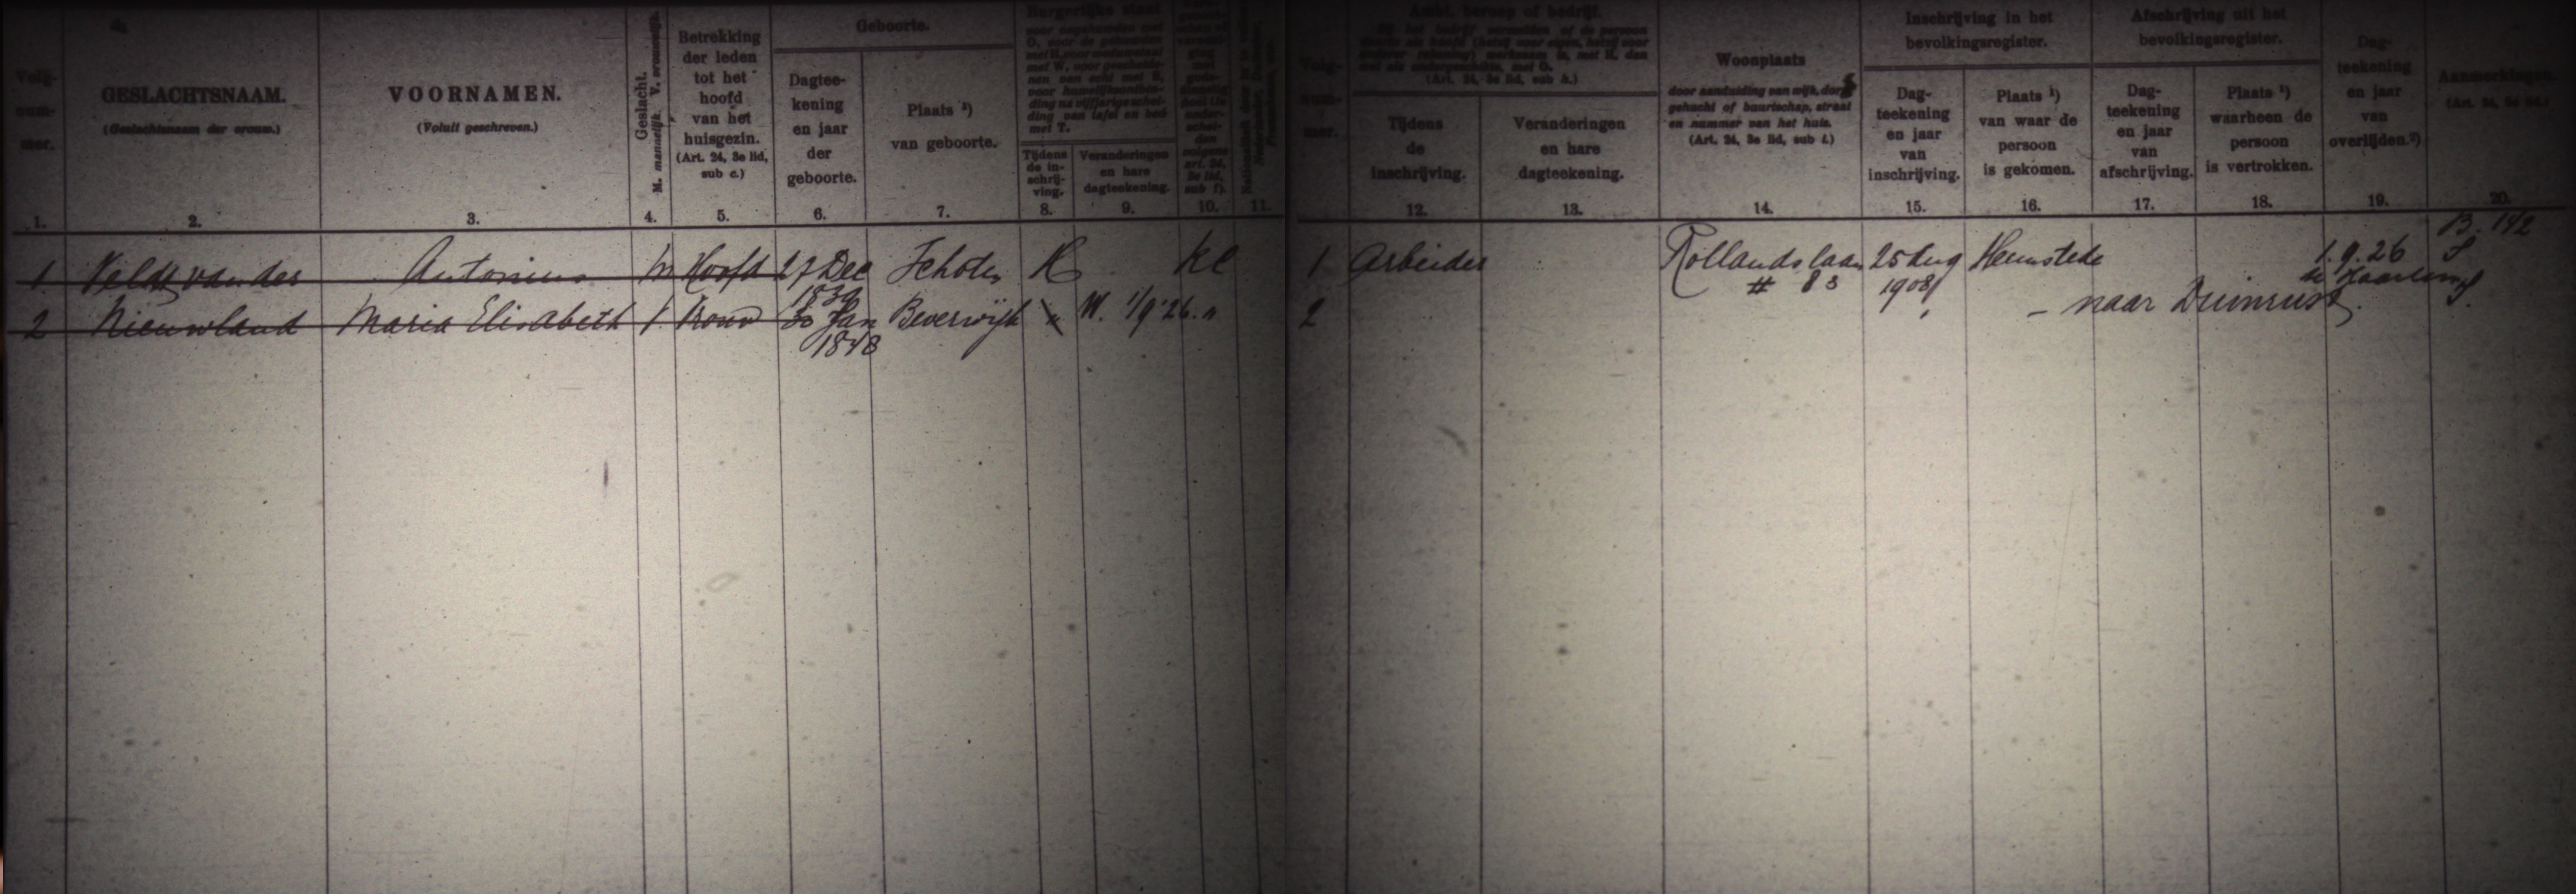 Volg-
num-
mer.
GESLACHTSNAAM.
(Geslachtsnaam der vrouw.)
VOORNAMEN.
(Voluit geschreven.)
Geslacht.
M. mannelijk. V. vrouwelijk.
Betrekking
der leden
tot het
hoofd
van het
huisgezin.
(Art. 24, 3e lid,
sub c.)
Geboorte.
Dagtee-
kening
en jaar
der
geboorte.
Plaats ¹)
van geboorte.
Burgerlijke staat
Tijdens
de in-
schrij-
ving.
Veranderingen
en hare
dagteekening.
Ambt, beroep of bedrijf.
(Art. 24, 3e lid, sub h.)
Tijdens
de
inschrijving.
Veranderingen
en hare
dagteekening.
Woonplaats
door aanduiding van wijk, dorp
gehucht of buurtschap, straat
en nummer van het huis.
(Art. 24, 3e lid, sub i.)
Inschrijving in het
bevolkingsregister.
Dag-
teekening
en jaar
van
inschrijving.
Plaats ¹)
van waar de
persoon
is gekomen.
Afschrijving uit het
bevolkingsregister.
Dag-
teekening
en jaar
van
afschrijving.
Plaats ¹)
waarheen de
persoon
is vertrokken.
Dag-
teekening
en jaar
van
overlijden.²)
Aanmerkingen.
1. 2. 3. 4. 5. 6. 7. 8. 9. 10. 11. 12. 13. 14. 15. 16. 17. 18. 19. 20.
B. 142
1 Veldt van der Antonius M Hoofd 27 Dec Schoten K RC 1 Arbeider Rollandslaan 25 Aug Heemstede 1.9.26
1839 # 83 1908 te Haarlem
2 Nieuwland Maria Elisabeth V Vrouw 30 Jan Beverwijk " W. 1/9 '26. " 2 " - naar Duinrust.
1848